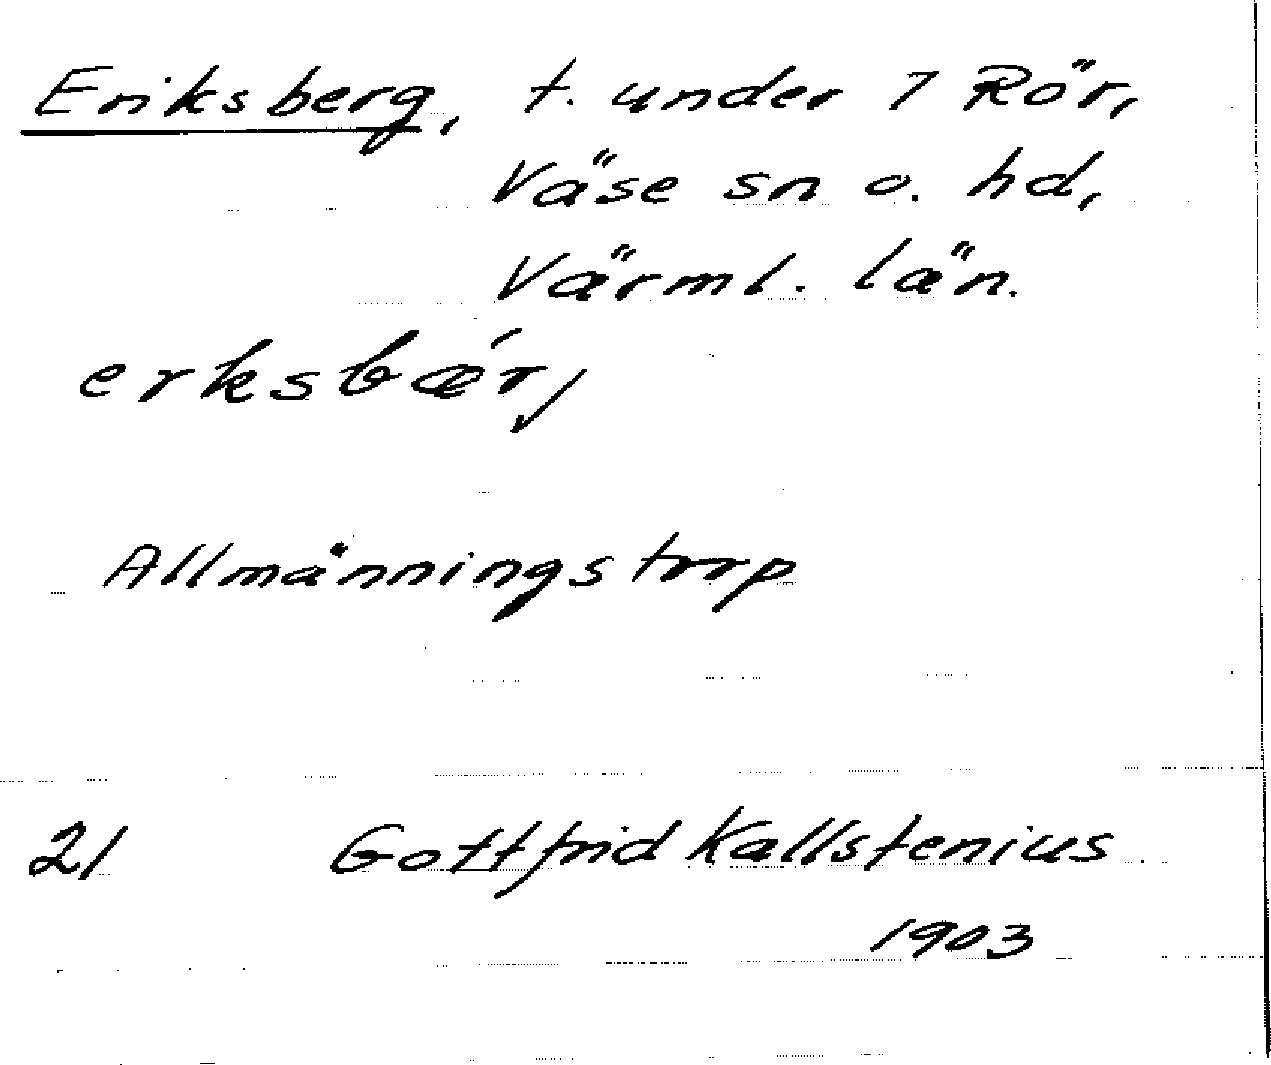 Eriksberg, t. under 7 Rör,
Väse sn o. hd,
Värml. län.
erksbǽr,
Allmänningstorp
21 Gottfrid Kallstenius
1903